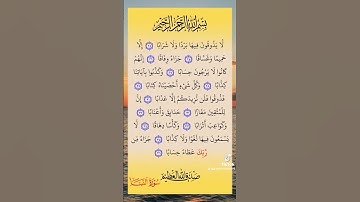 بِسْمِ اللَّهِ الرَّحْمَٰنِ الرَّحِيمِ
لَّا يَذُوقُونَ فِيهَا بَرْدًا وَلَا شَرَابًا ۝ إِلَّا
حَمِيمًا وَغَسَّاقًا ۝ جَزَاءً وِفَاقًا ۝ إِنَّهُمْ
كَانُوا لَا يَرْجُونَ حِسَابًا ۝ وَكَذَّبُوا بِآيَاتِنَا
كِذَّابًا ۝ وَكُلَّ شَيْءٍ أَحْصَيْنَاهُ كِتَابًا ۝
فَذُوقُوا فَلَن نَّزِيدَكُمْ إِلَّا عَذَابًا ۝ إِنَّ
لِلْمُتَّقِينَ مَفَازًا ۝ حَدَائِقَ وَأَعْنَابًا ۝
وَكَوَاعِبَ أَتْرَابًا ۝ وَكَأْسًا دِهَاقًا ۝ لَّا
يَسْمَعُونَ فِيهَا لَغْوًا وَلَا كِذَّابًا ۝ جَزَاءً مِّن
رَّبِّكَ عَطَاءً حِسَابًا ۝
صدق الله العظيم
سورة النبأ